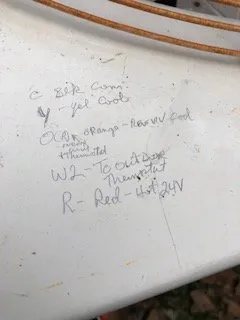 C Blk Com
Y - yel Cool
O orange - Rev VlV Cool
+ Thermostat
W2 - To outdoor
Thermostat
R - Red - Hot 24V